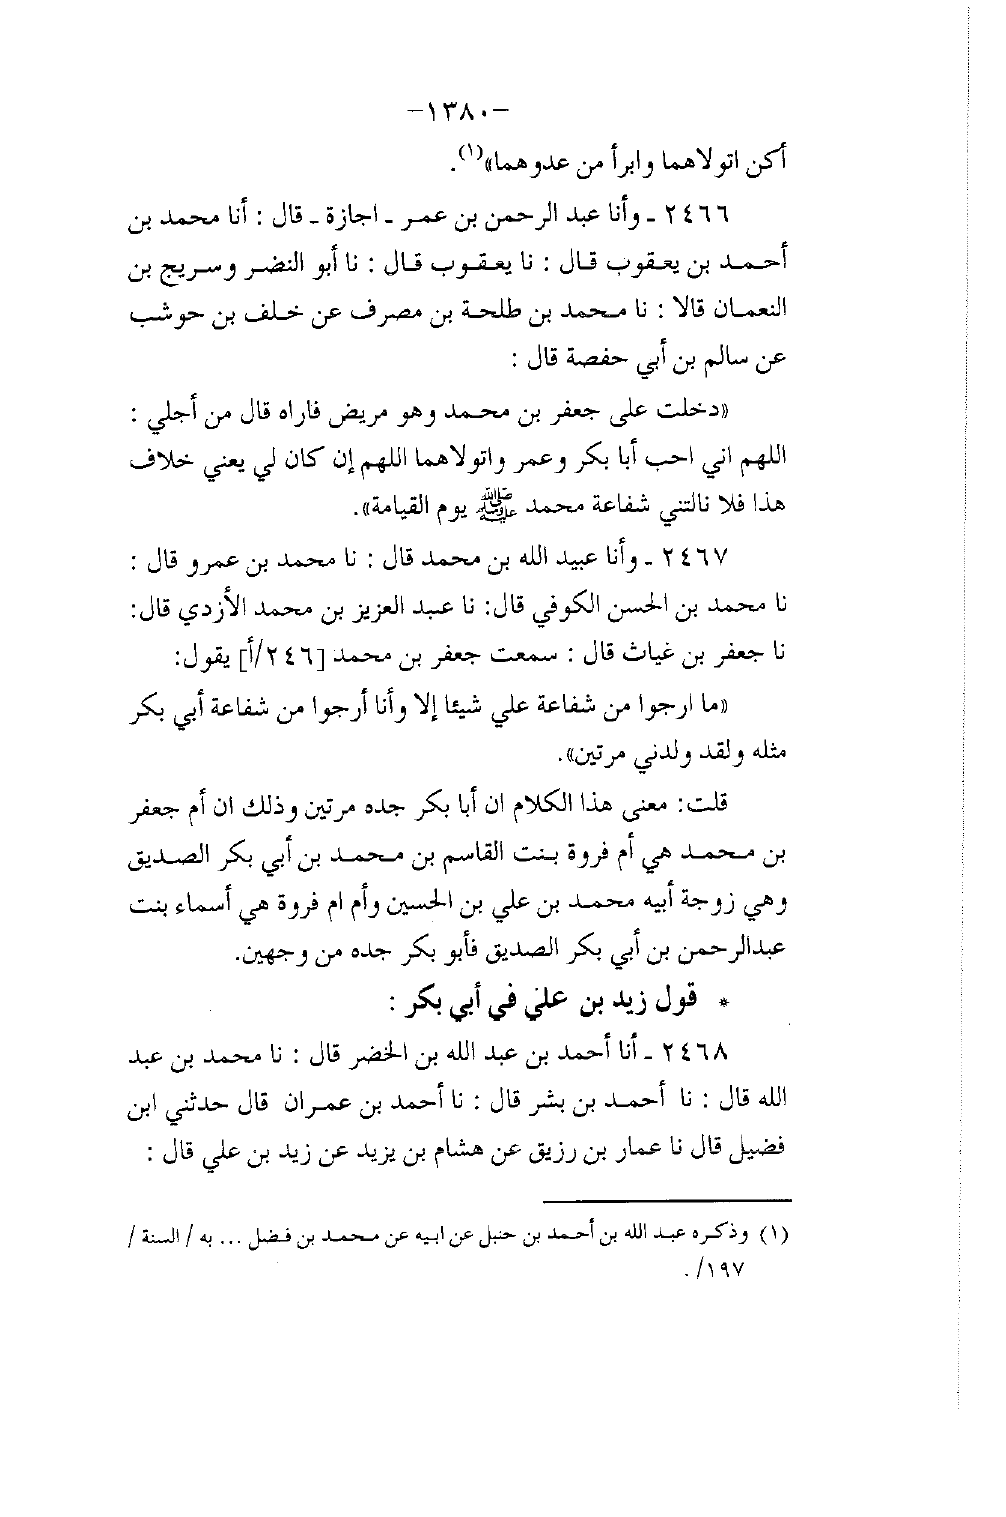 -١٣٨٠-
أكن اتولاهما وابرأ من عدوهما»(١).
٢٤٦٦ ـ وأنا عبد الرحمن بن عمر ـ اجازة ـ قال : أنا محمد بن
أحمد بن يعقوب قال : نا يعقوب قال : نا أبو النضر وسريج بن
النعمان قالا : نا محمد بن طلحة بن مصرف عن خلف بن حوشب
عن سالم بن أبي حفصة قال :
«دخلت على جعفر بن محمد وهو مريض فاراه قال من أجلي :
اللهم اني احب أبا بكر وعمر واتولاهما اللهم إن كان لي يعني خلاف
هذا فلا نالتني شفاعة محمد ﷺ يوم القيامة».
٢٤٦٧ ـ وأنا عبيد الله بن محمد قال : نا محمد بن عمرو قال :
نا محمد بن الحسن الكوفي قال: نا عبد العزيز بن محمد الأزدي قال:
نا جعفر بن غياث قال : سمعت جعفر بن محمد [٢٤٦/أ] يقول:
«ما ارجوا من شفاعة علي شيئا إلا وأنا أرجوا من شفاعة أبي بكر
مثله ولقد ولدني مرتين».
قلت: معنى هذا الكلام ان أبا بكر جده مرتين وذلك ان أم جعفر
بن محمد هي أم فروة بنت القاسم بن محمد بن أبي بكر الصديق
وهي زوجة أبيه محمد بن علي بن الحسين وأم ام فروة هي أسماء بنت
عبدالرحمن بن أبي بكر الصديق فأبو بكر جده من وجهين.
* قول زيد بن علي في أبي بكر :
٢٤٦٨ ـ أنا أحمد بن عبد الله بن الخضر قال : نا محمد بن عبد
الله قال : نا أحمد بن بشر قال : نا أحمد بن عمران قال حدثني ابن
فضيل قال نا عمار بن رزيق عن هشام بن يزيد عن زيد بن علي قال :
(١) وذكره عبد الله بن أحمد بن حنبل عن ابيه عن محمد بن فضل ... به / السنة /
١٩٧/ .